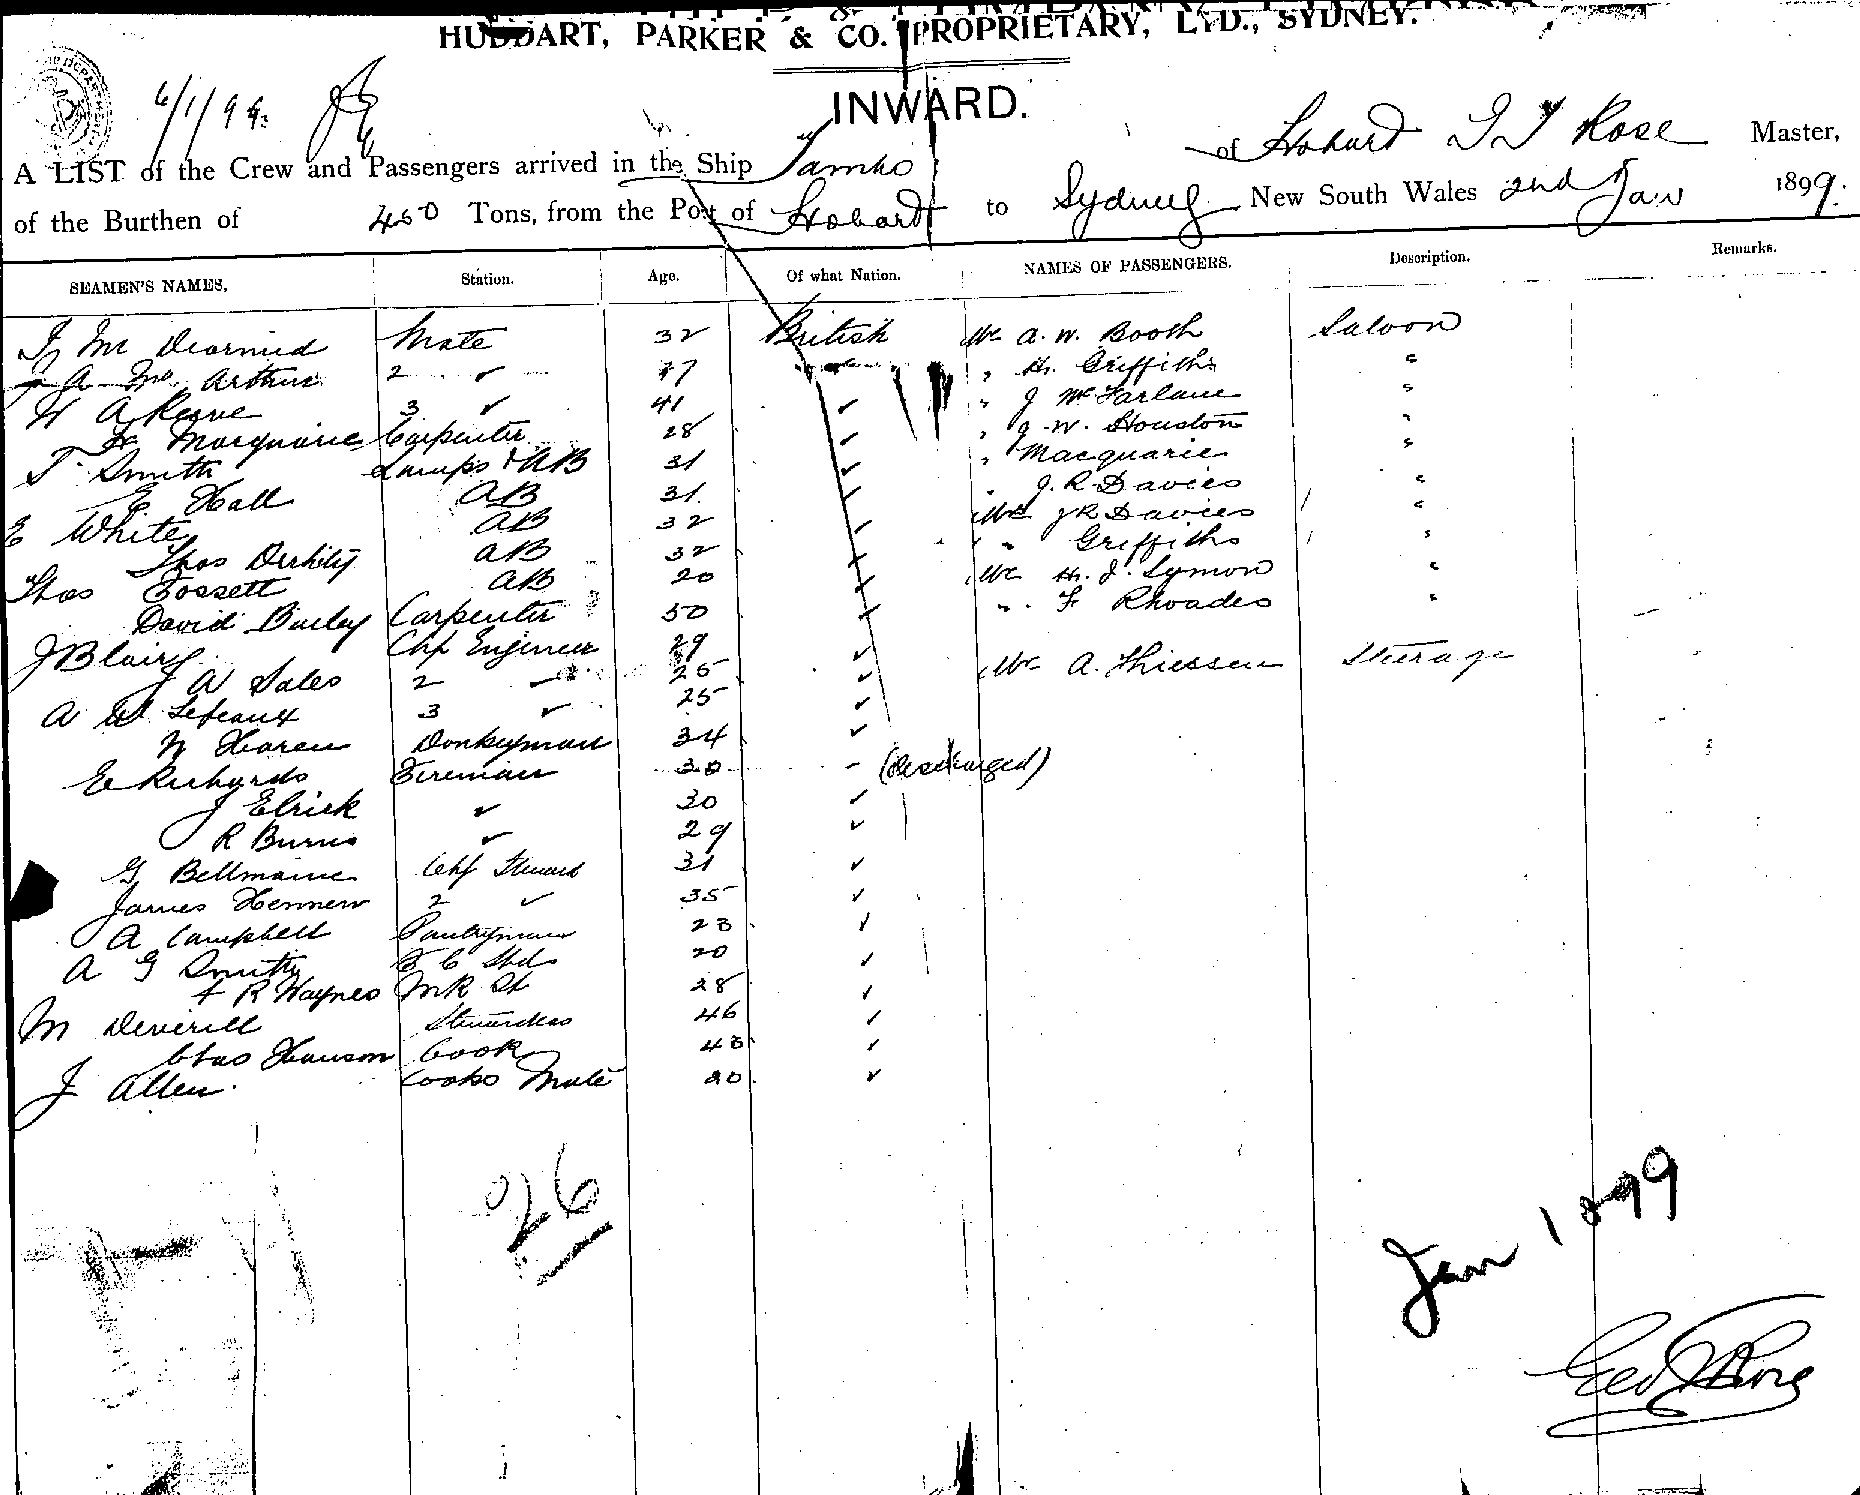 HUDDART, PARKER & CO. PROPRIETARY, LTD., SYDNEY.
6/1/99.
INWARD.
A LIST of the Crew and Passengers arrived in the Ship Tambo of Hobart Rose Master,
of the Burthen of 450 Tons, from the Port of Hobart to Sydney New South Wales 2nd Jan 1899.
SEAMEN'S NAMES, Station. Age. Of what Nation. NAMES OF PASSENGERS. Description. Remarks.
Mc Diarmid Mate 32 British Mr A. W. Booth Saloon
A Mc Arthur 2 ✓ " H. Griffiths "
A Reeve 3 ✓ 41 ✓ " J McFarlane "
Macquarie Carpenter 28 ✓ " J. W. Houston "
T Smith Lamps & AB 31 ✓ " Macquarie "
E Hall AB 31 ✓ " J. R. Davies "
E White AB 32 ✓ Mrs J R Davies "
Thos AB 32 ✓ " Griffiths "
Thos Fossett AB 20 ✓ Mr H. J. Symon "
David Carpenter 50 ✓ " F Rhoades "
J Blair Chf Engineer 29 ✓ Mr A. Thiessen Steerage
J A Sales 2 ✓ 25 ✓
A W Lebeaux 3 ✓ 25 ✓
Donkeyman 34 ✓
E Richards Fireman 30 - (discharged)
J Elrick ✓ 30 ✓
R Burns ✓ 29 ✓
G Bellmaine Chf Steward 31 ✓
James 2 ✓ 35 ✓
A Campbell Pantryman 23 ✓
A G Smith F C Std 20 ✓
R Haynes M R St 28 ✓
M Deverill Stewardess 46 ✓
Chas Hanson Cook 43 ✓
J Allen. Cooks Mate 20 ✓
26
Jan 1899
Geo